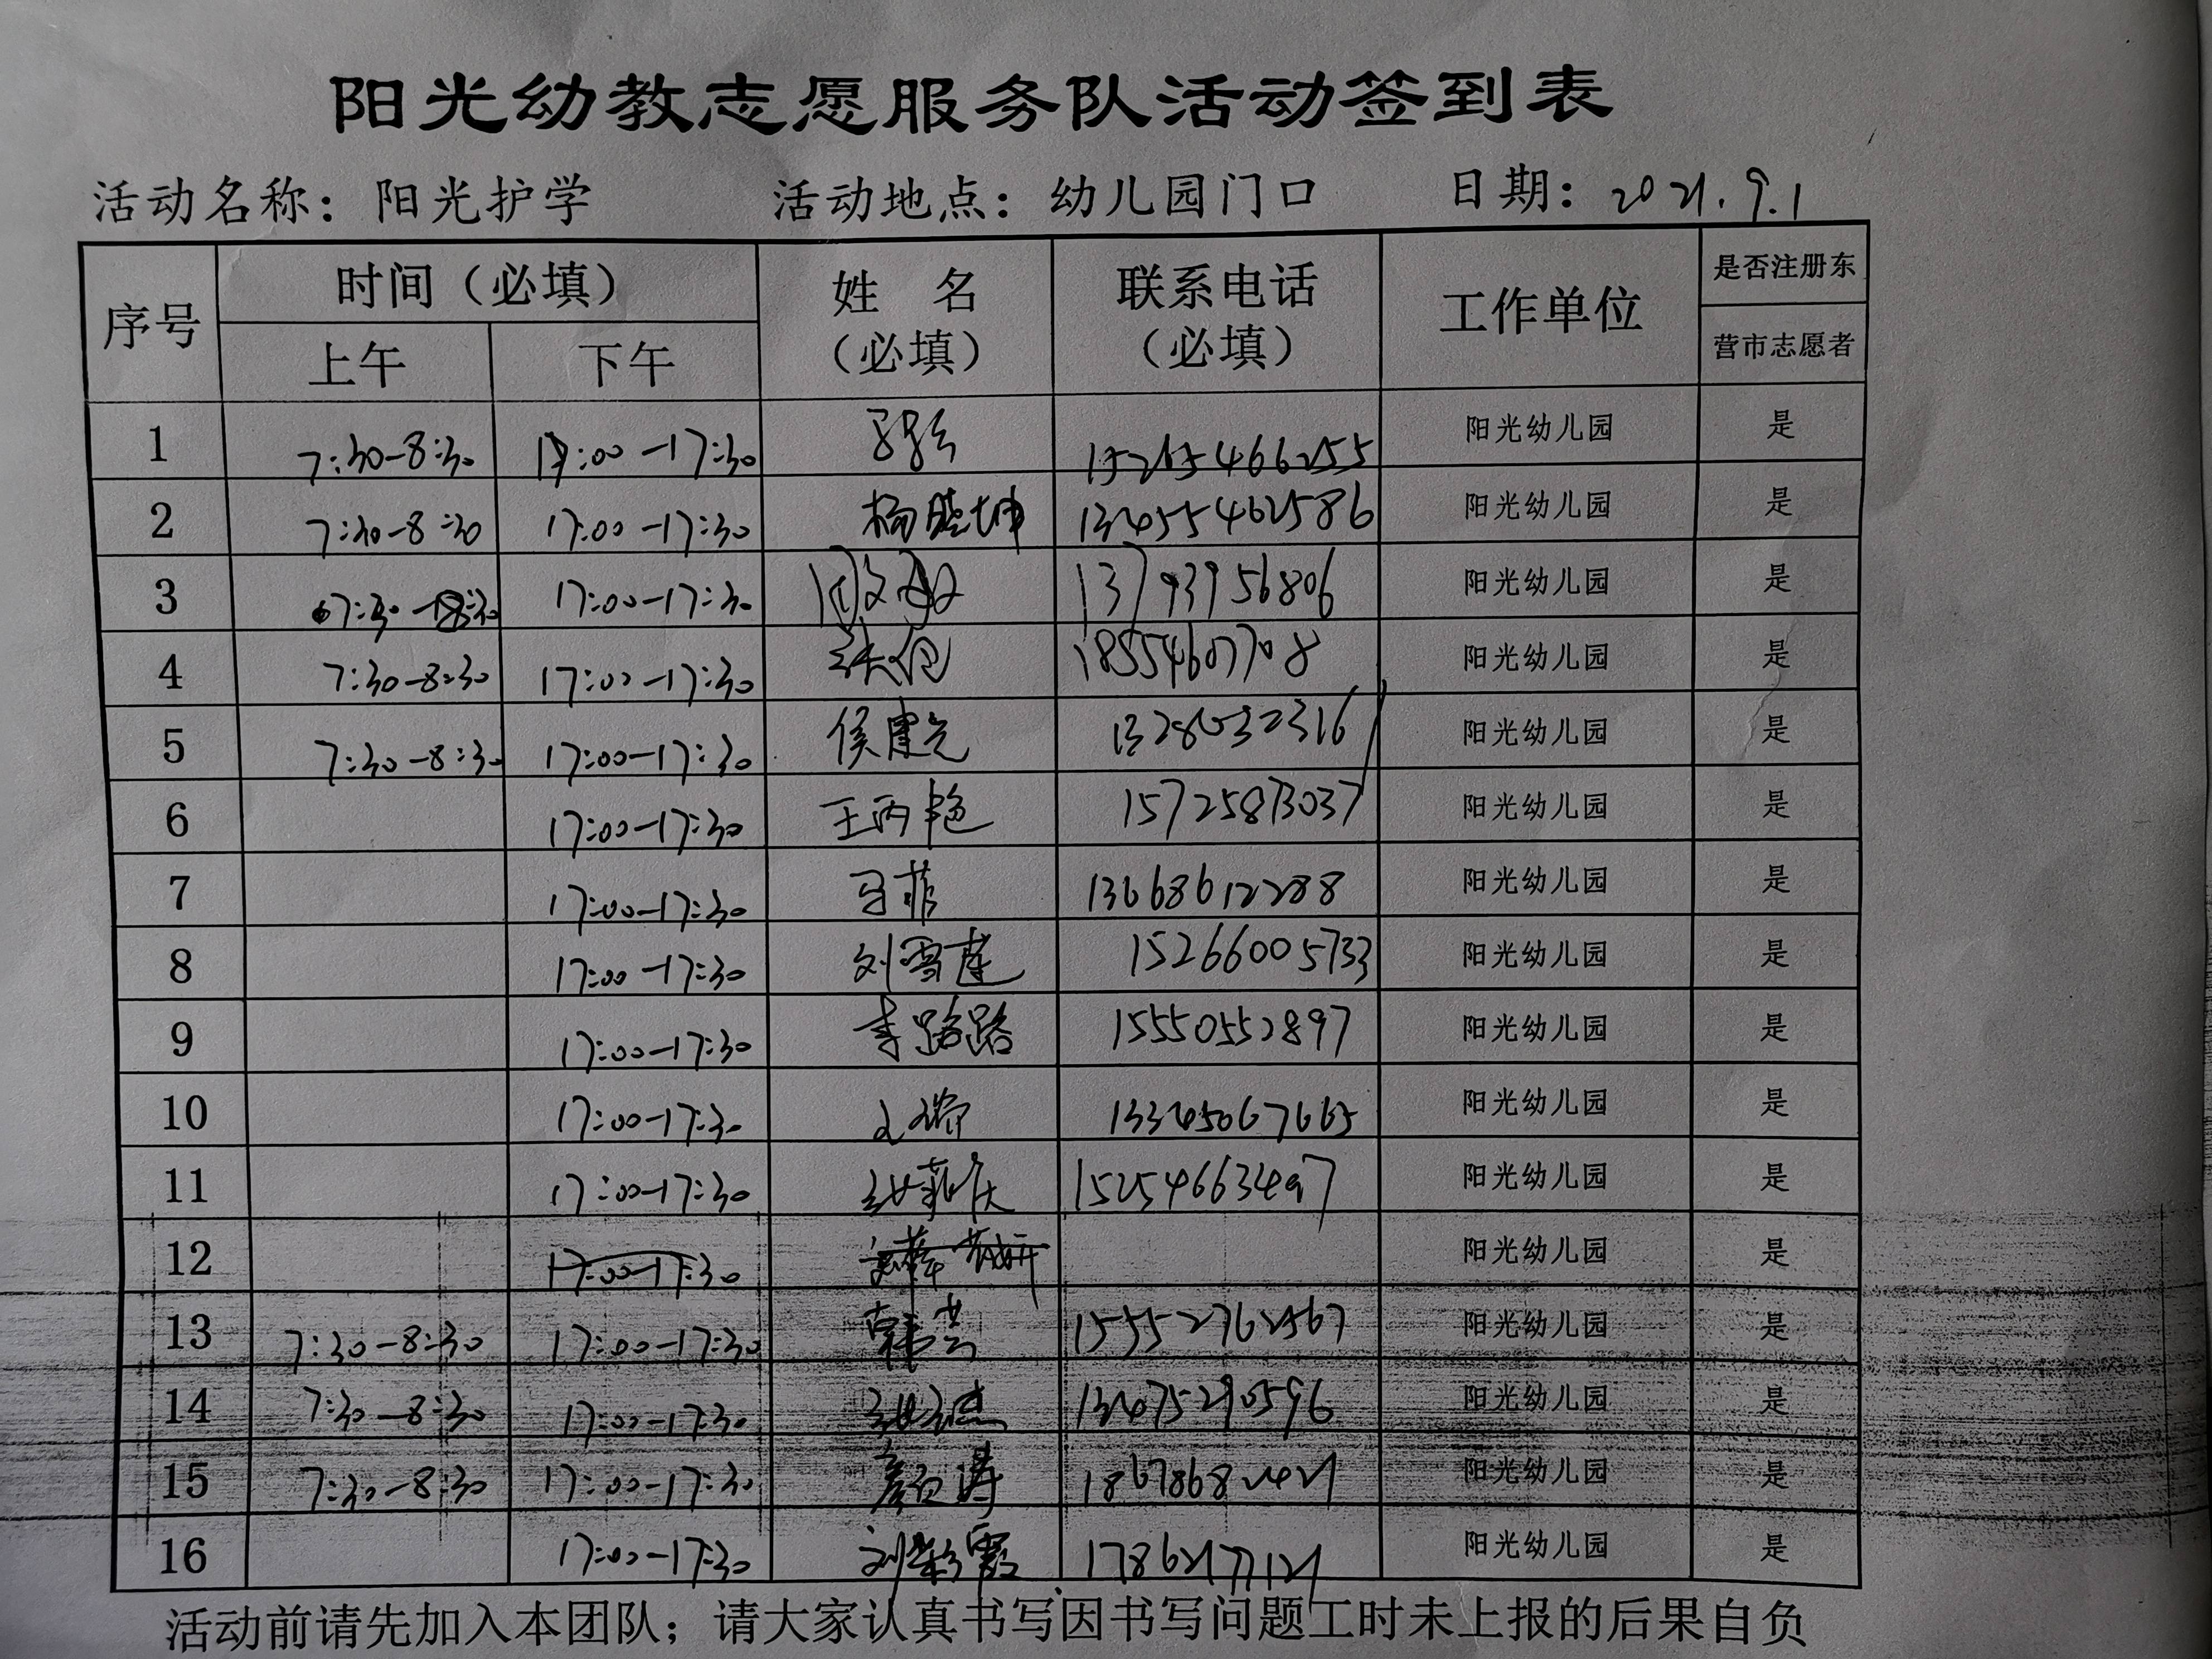 阳光幼教志愿服务队活动签到表
活动名称：阳光护学 活动地点：幼儿园门口 日期：2021.9.1
序号 时间（必填） 姓 名（必填） 联系电话（必填） 工作单位 是否注册东营市志愿者
上午 下午
1 7:30-8:30 17:00-17:30 15265466255 阳光幼儿园 是
2 7:30-8:30 17:00-17:30 杨晓坤 阳光幼儿园 是
3 07:30-18:30 17:00-17:30 闫文敏 13793956806 阳光幼儿园 是
4 7:30-8:30 17:00-17:30 18554607708 阳光幼儿园 是
5 7:30-8:30 17:00-17:30 侯建光 阳光幼儿园 是
6 17:00-17:30 王丙艳 15725873037 阳光幼儿园 是
7 17:00-17:30 马菲 13668612288 阳光幼儿园 是
8 17:00-17:30 刘雪莲 15266005733 阳光幼儿园 是
9 17:00-17:30 李路路 15550552897 阳光幼儿园 是
10 17:00-17:30 13345067665 阳光幼儿园 是
11 17:00-17:30 15254663497 阳光幼儿园 是
12 17:00-17:30 阳光幼儿园 是
13 7:30-8:30 17:00-17:30 韩芸 15552762567 阳光幼儿园 是
14 7:30-8:30 17:00-17:30 阳光幼儿园 是
15 7:30-8:30 17:00-17:30 颜涛 18678682421 阳光幼儿园 是
16 17:00-17:30 刘彩霞 17862177121 阳光幼儿园 是
活动前请先加入本团队；请大家认真书写因书写问题工时未上报的后果自负